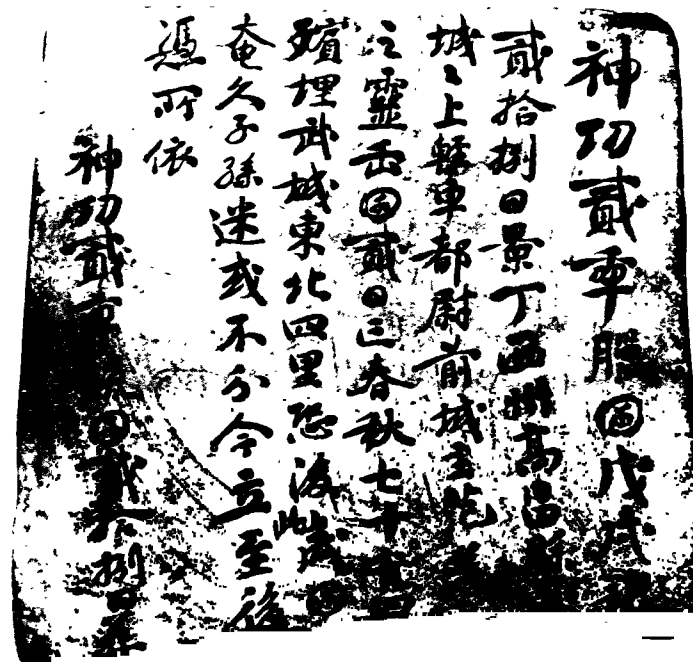 神功貳年臘囝戊戌
貳拾捌日景丁西州高昌縣
城〻上輕車都尉前城主范
之靈正囝貳日亡春秋七十有四
殯埋武城東北四里恐後歲囝
奄久子孫迷或不分今立至後
憑所依
神功貳年臘囝貳拾捌日葬